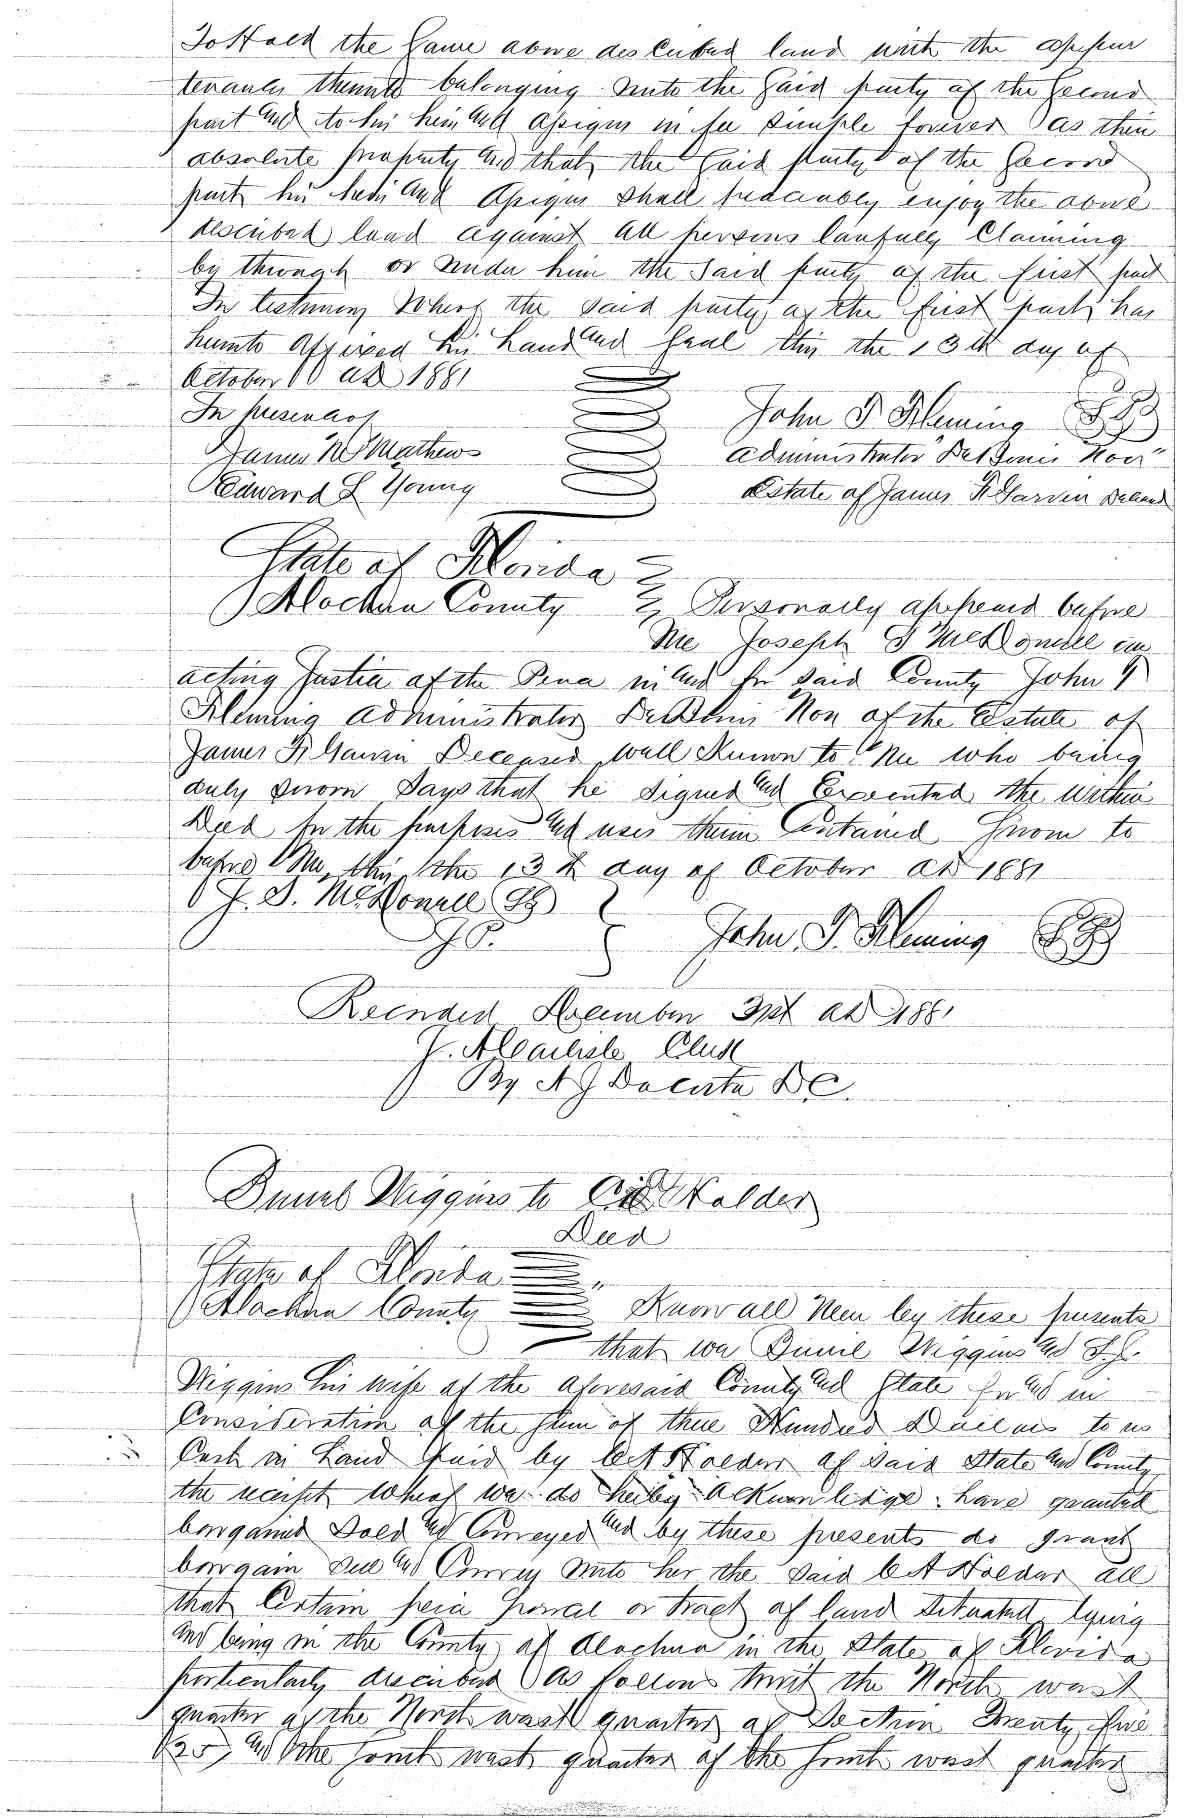 To Hold the same above described land with the appur
tenances thereunto belonging unto the said party of the second
part and to his heirs and assigns in fee simple forever as their
absolute property and that the said party of the second
part his heirs and assigns shall peaceably enjoy the above
described land against all persons lawfully claiming
by through or under him the said party of the first part
In testimony whereof the said party of the first part has
hereunto affixed his hand and seal this the 13th day of
October AD 1881
In presence of
John F Fleming
James N Mathews
Administrator De Bonis Non
Edward L Young
Estate of James F Garvin Deceased
State of Florida
Alachua County Personally appeared before
Me Joseph S McDonell an
acting Justice of the Peace in and for said County John F
Fleming Administrator De Bonis Non of the Estate of
James F Garvin Deceased well Known to Me who being
duly sworn says that he signed and Executed the within
Deed for the purposes and uses therein Contained Sworn to
before Me, this the 13th day of October AD 1881
J. S. McDonell
J P.
John F. Fleming
Recorded December 31st AD 1881
J. A Carlisle Clerk
By A J Dacosta DC.
Wiggins to Holder
Deed
State of Florida
Alachua County Know all Men by these presents
that we Wiggins and
Wiggins his wife of the aforesaid County and State for and in
Consideration of the sum of three Hundred Dollars to us
Cash in hand paid by C A Holder of said State and County
the receipt whereof we do hereby acknowledge have granted
borgained Sold and Conveyed and by these presents do grant
borgain sell and Convey unto her the said C A Holder all
that Certain peice porcel or tract of land situated lying
and being in the County of Alachua in the State of Florida
porticularly described as follows towit the North west
quarter of the North west quarter of Section Twenty five
(25) and the South west quarter of the South west quarter